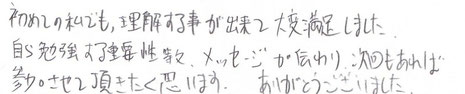 初めての私でも,理解する事が出来て大変満足しました.
自ら勉強する重要性等、メッセージが伝わり、次回もあれば
参加させて頂きたく思います. ありがとうございました.